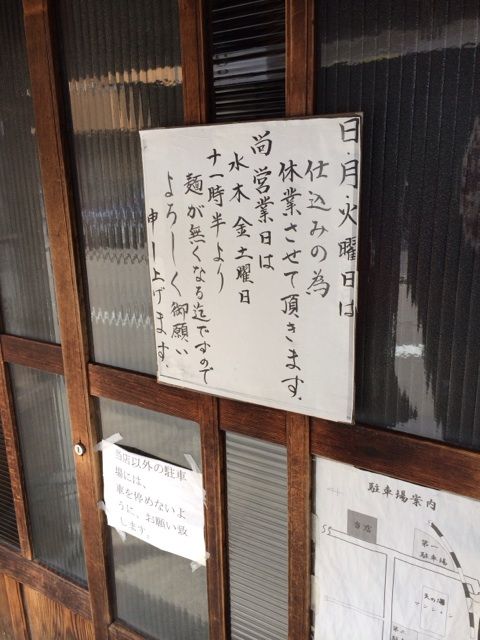 日・月・火曜日は
仕込みの為
休業させて頂きます.
尚営業日は
水木金土曜日
十一時半より
麺が無くなる迄ですので
よろしく御願い
申し上げます.
当店以外の駐車
場には、
車を停めないよ
うに、お願い致
します。
駐車場案内
当店
第一
駐車場
マンション
第二